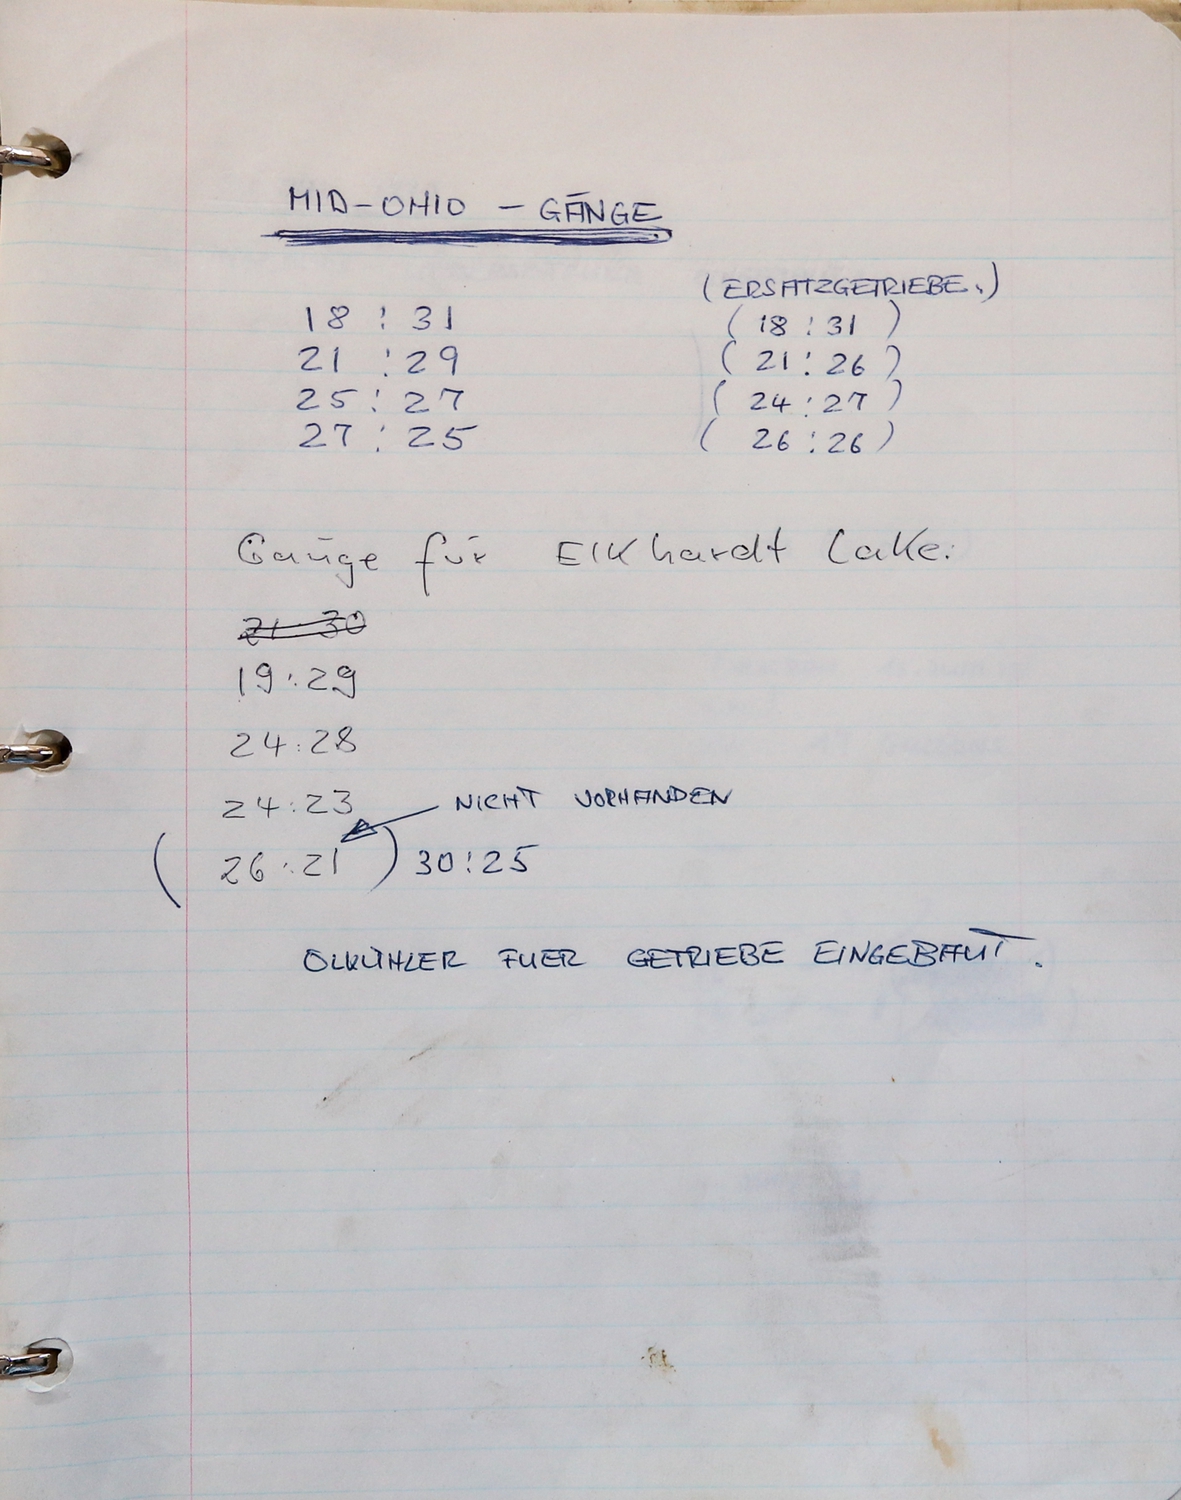 MID-OHIO - GÄNGE
(ERSATZGETRIEBE.)
18 : 31 ( 18 : 31 )
21 : 29 ( 21 : 26 )
25 : 27 ( 24 : 27 )
27 : 25 ( 26 : 26 )
Gänge für Elkhardt Lake:
21 30
19 : 29
24 : 28
24 : 23 NICHT VORHANDEN
( 26 : 21 ) 30 : 25
ÖLKÜHLER FUER GETRIEBE EINGEBAUT.